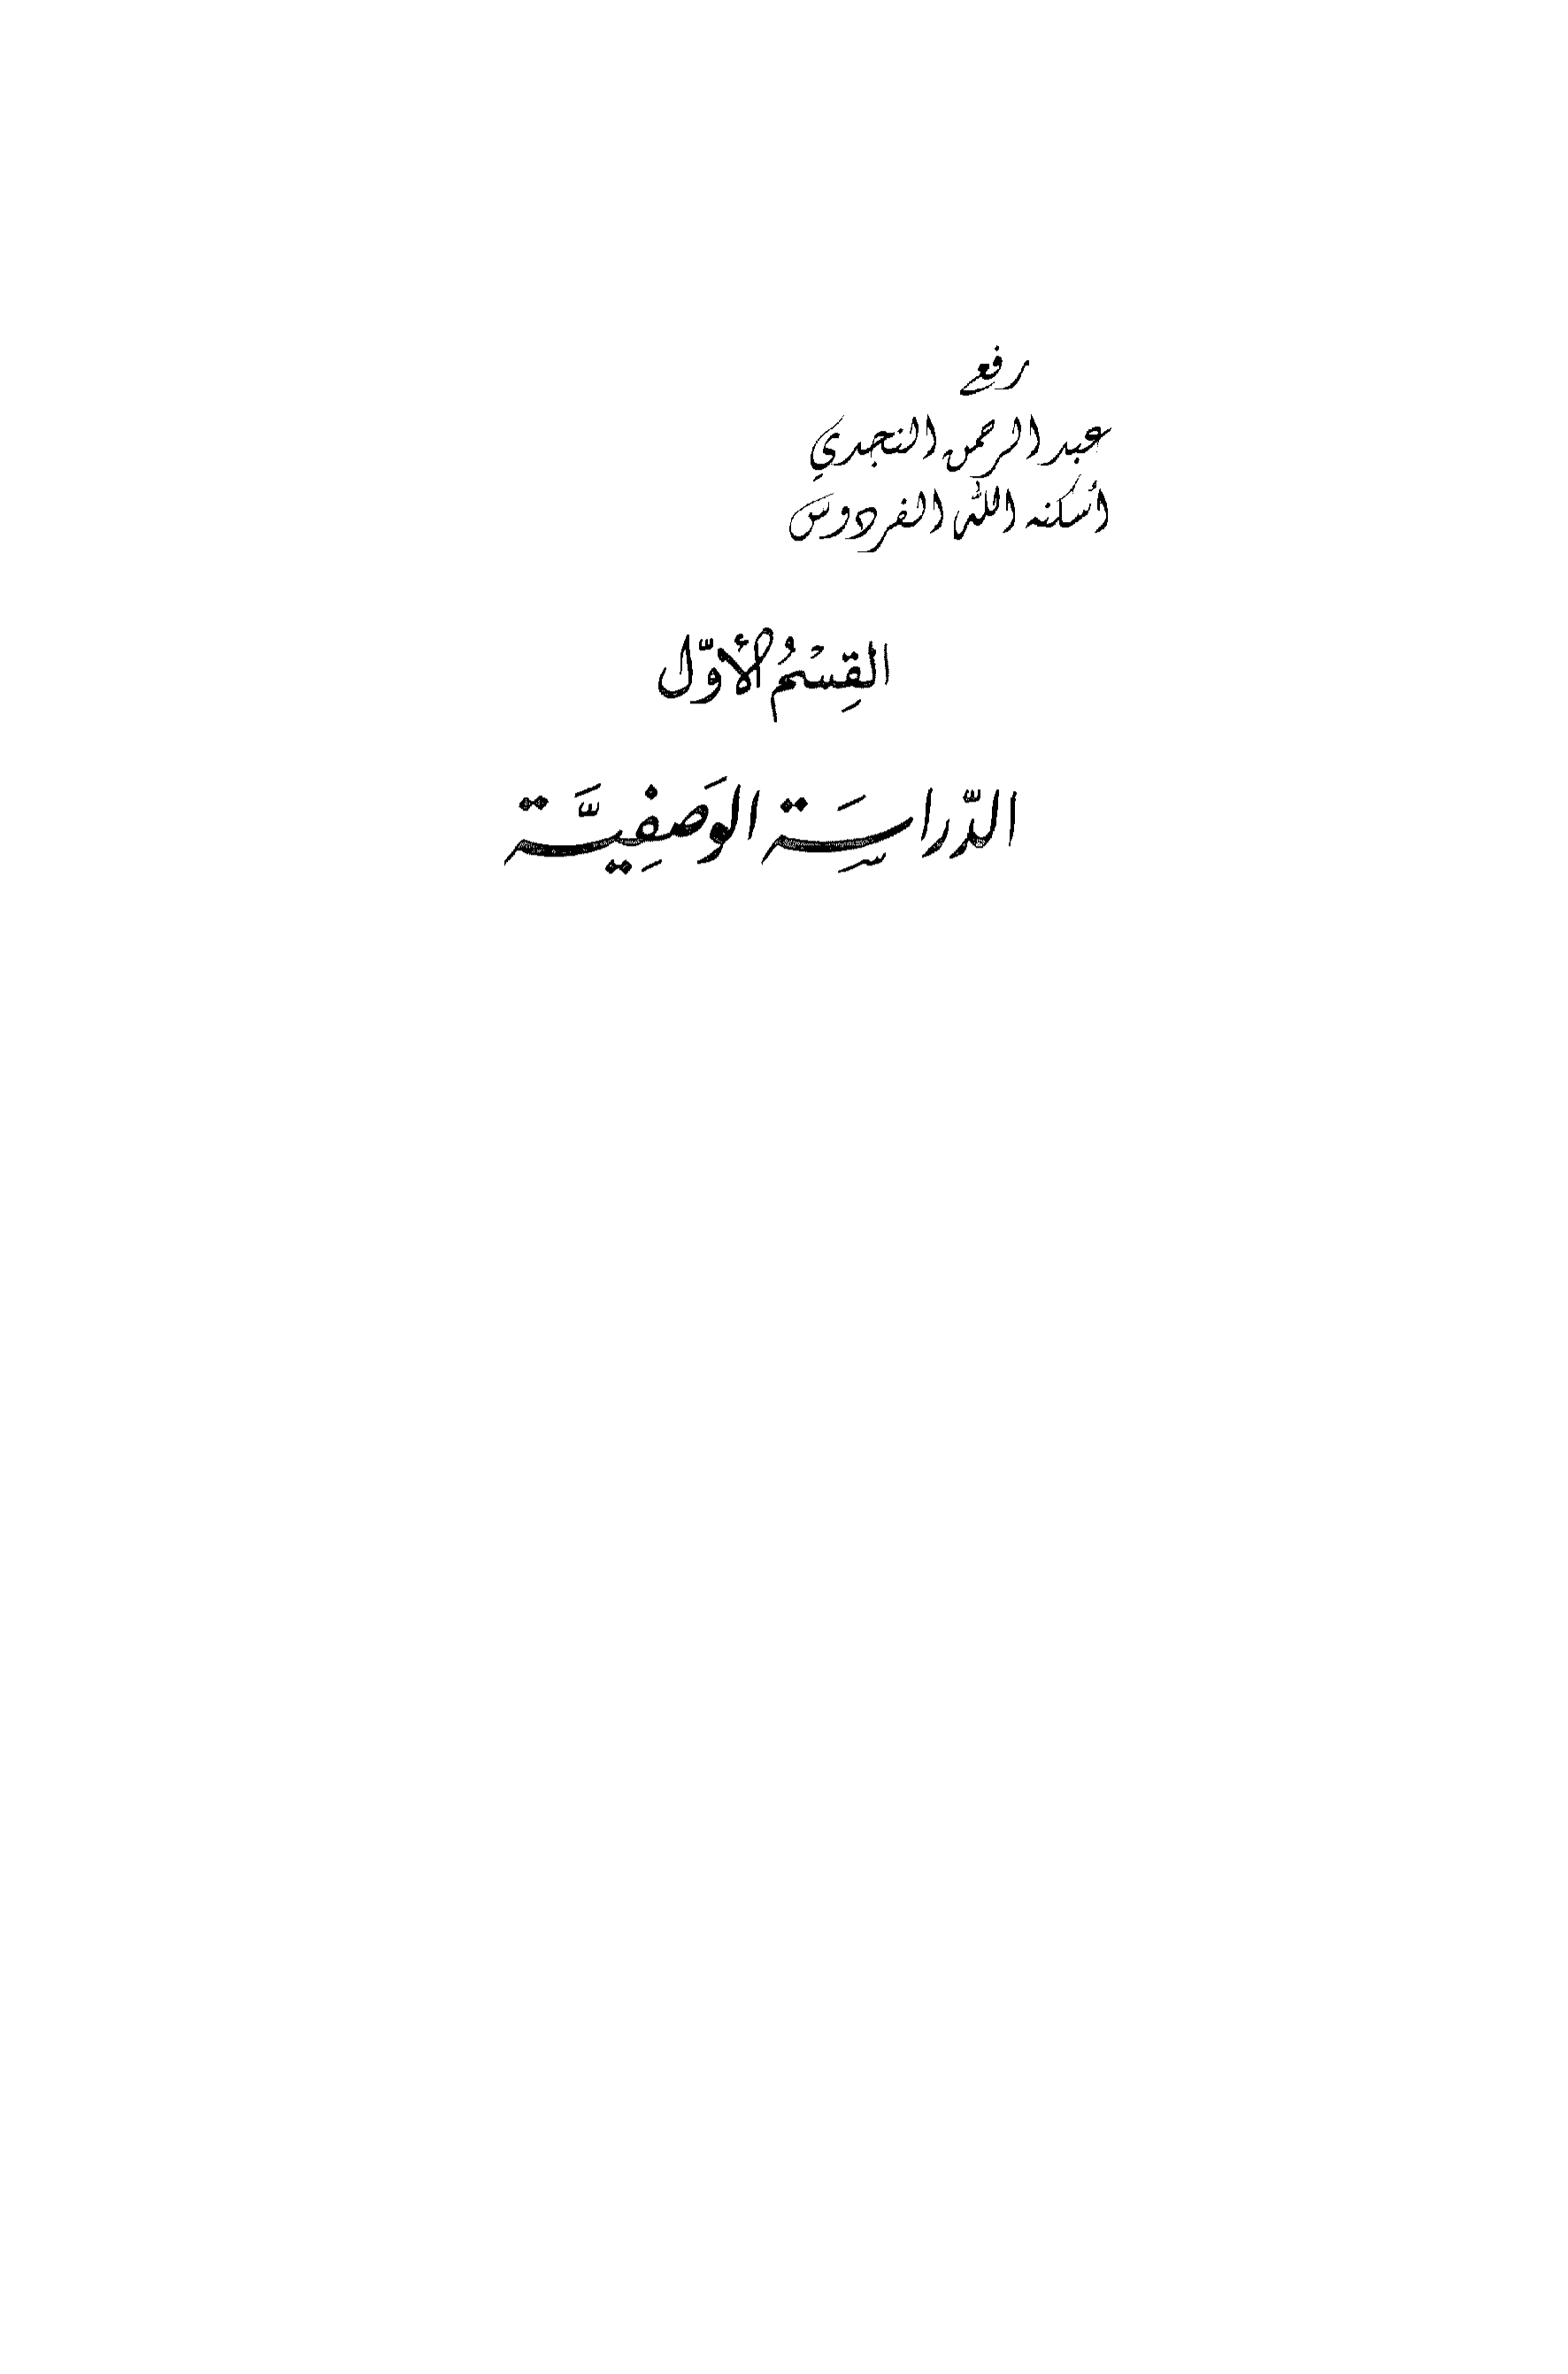 رفع
عبد الرحمن النجدي
أسكنه الله الفردوس
القِسْمُ الأوّل
الدّراسَة الوَصفِيَّة